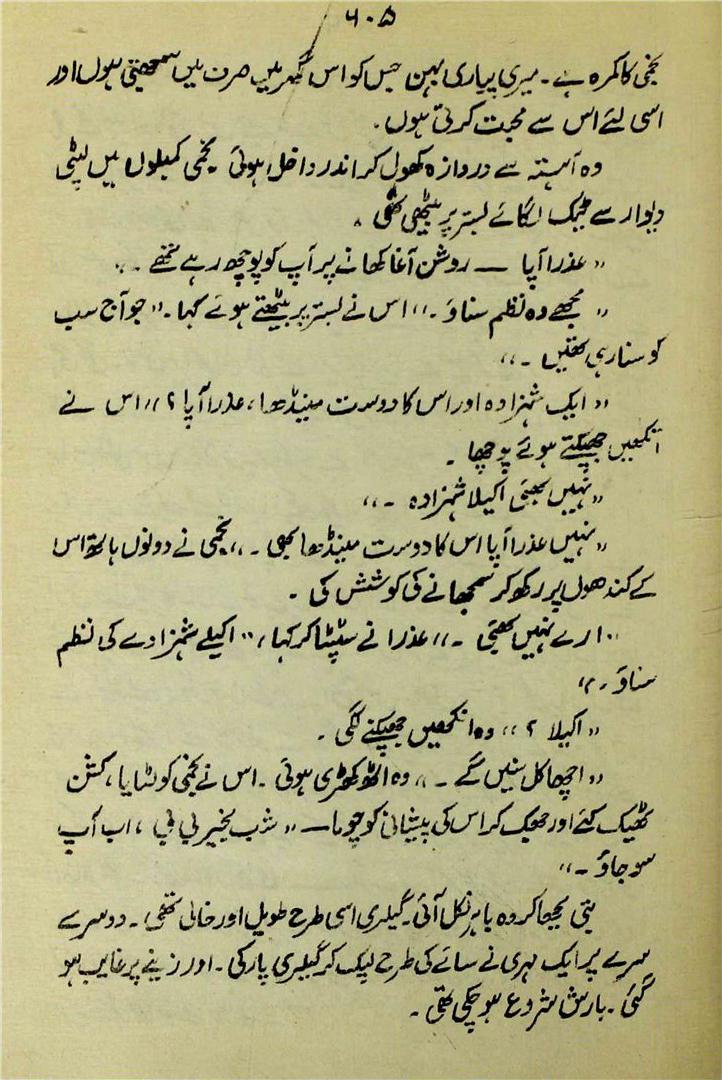 ۶۰۵
نجمی کا کمرہ ہے۔ میری پیاری بہن جس کو اس گھر میں صرف میں سمجھتی ہوں اور
اسی لئے اس سے محبت کرتی ہوں۔
وہ آہستہ سے دروازہ کھول کر اندر داخل ہوئی نجمی کمبلوں میں لپٹی
دیوار سے ٹیک لگائے بستر پر بیٹھی تھی۔
"عذرا آپا — روشن آغا کھانے پر آپ کو پوچھ رہے تھے ۔"
"مجھے وہ نظم سناؤ ۔" اس نے بستر پر بیٹھتے ہوئے کہا۔ "جو آج سب
کو سنا رہی تھیں ۔"
"ایک شہزادہ اور اس کا دوست مینڈھا، عذرا آپا ؟" اس نے
آنکھیں جھپکتے ہوئے پوچھا ۔
"نہیں بھئی اکیلا شہزادہ ۔"
"نہیں عذرا آپا اس کا دوست مینڈھا بھی ۔" نجمی نے دونوں ہاتھ اس
کے کندھوں پر رکھ کر سمجھانے کی کوشش کی ۔
"ارے نہیں بھئی ۔" عذرا نے سٹپٹا کر کہا، "اکیلے شہزادے کی نظم
سناؤ ۔"
"اکیلا ؟" وہ آنکھیں جھپکنے لگی ۔
"اچھا کل سنیں گے ۔" وہ اٹھ کھڑی ہوئی ۔ اس نے نجمی کو لٹایا، کشن
ٹھیک کئے اور جھک کر اس کی پیشانی کو چوما — "شب بخیر بی بی ، اب آپ
سو جاؤ ۔"
بتی بجھا کر وہ باہر نکل آئی۔ گیلری اسی طرح طویل اور خالی تھی ۔ دوسرے
سرے پر ایک لہری نے سائے کی طرح لپک کر گیلری پار کی ۔ اور زینے پر غایب ہو
گئی ۔ بارش شروع ہو چکی تھی ۔